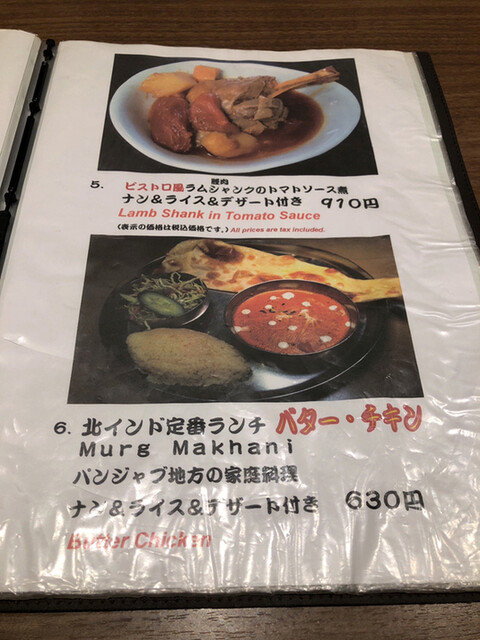 5. ビストロ風ラムシャンクのトマトソース煮
ナン&ライス&デザート付き 910円
Lamb Shank in Tomato Sauce
(表示の価格は税込価格です。) All prices are tax included.
6. 北インド定番ランチ バター・チキン
Murg Makhani
パンジャブ地方の家庭料理
ナン&ライス&デザート付き 630円
Butter Chicken